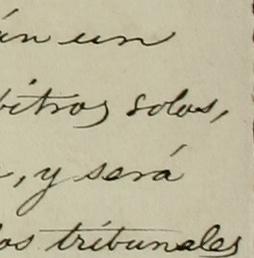 án un
bitros solos,
, y será
los tribunales